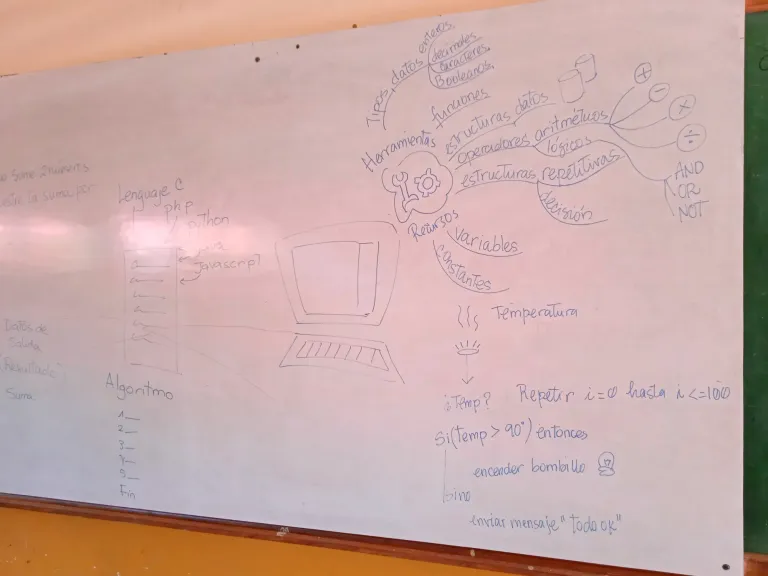 suma 2 números
la suma por
Datos de
Salida
Resultado
Suma
Lenguaje C
php
python
java
Javascript
Algoritmo
1
2
3
4
5
Fin
Tipos datos
enteros
decimales
caracteres
Booleanos
funciones
estructuras datos
Herramientas
operadores aritméticos
+
-
×
÷
lógicos
AND
OR
NOT
estructuras repetitivas
decisión
Recursos
variables
constantes
Temperatura
¿Temp? Repetir i=0 hasta i<=100
Si(Temp > 90°) entonces
encender bombillo
Sino
enviar mensaje "todo ok"